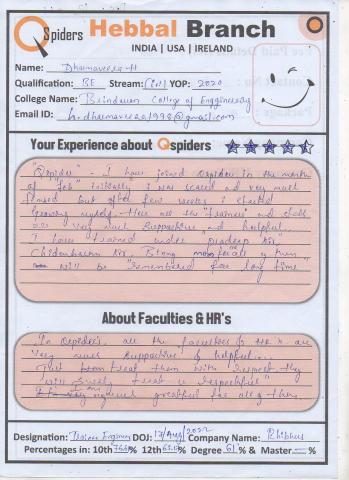 QSpiders Hebbal Branch
INDIA | USA | IRELAND
Name: Dharmaveera H
Qualification: BE Stream: Civil YOP: 2020
College Name: Brindavan College of Enggineering
Email ID: h.dharmaveera1998@gmail.com
Your Experience about Qspiders
"Qspider" - I have joined Qspider in the month
of "Feb" Initially I was scared and very much
but after few weeks, I started
learning nicely. Here all the Trainers and staffs
are very much supportive and helpful.
I have trained under "pradeep sir",
Chidambaram sir,
will be "remembered for long time"
About Faculties & HR's
In Qspiders, all the faculties & HR's are
very much supportive & helpful.
treat them with respect they
will surely treat us respectful"
I am very much greatful for all of them.
Designation: Trainee Engineer DOJ: 17/Aug/2022 Company Name:
Percentages in: 10th % 12th % Degree 61 % & Master — %